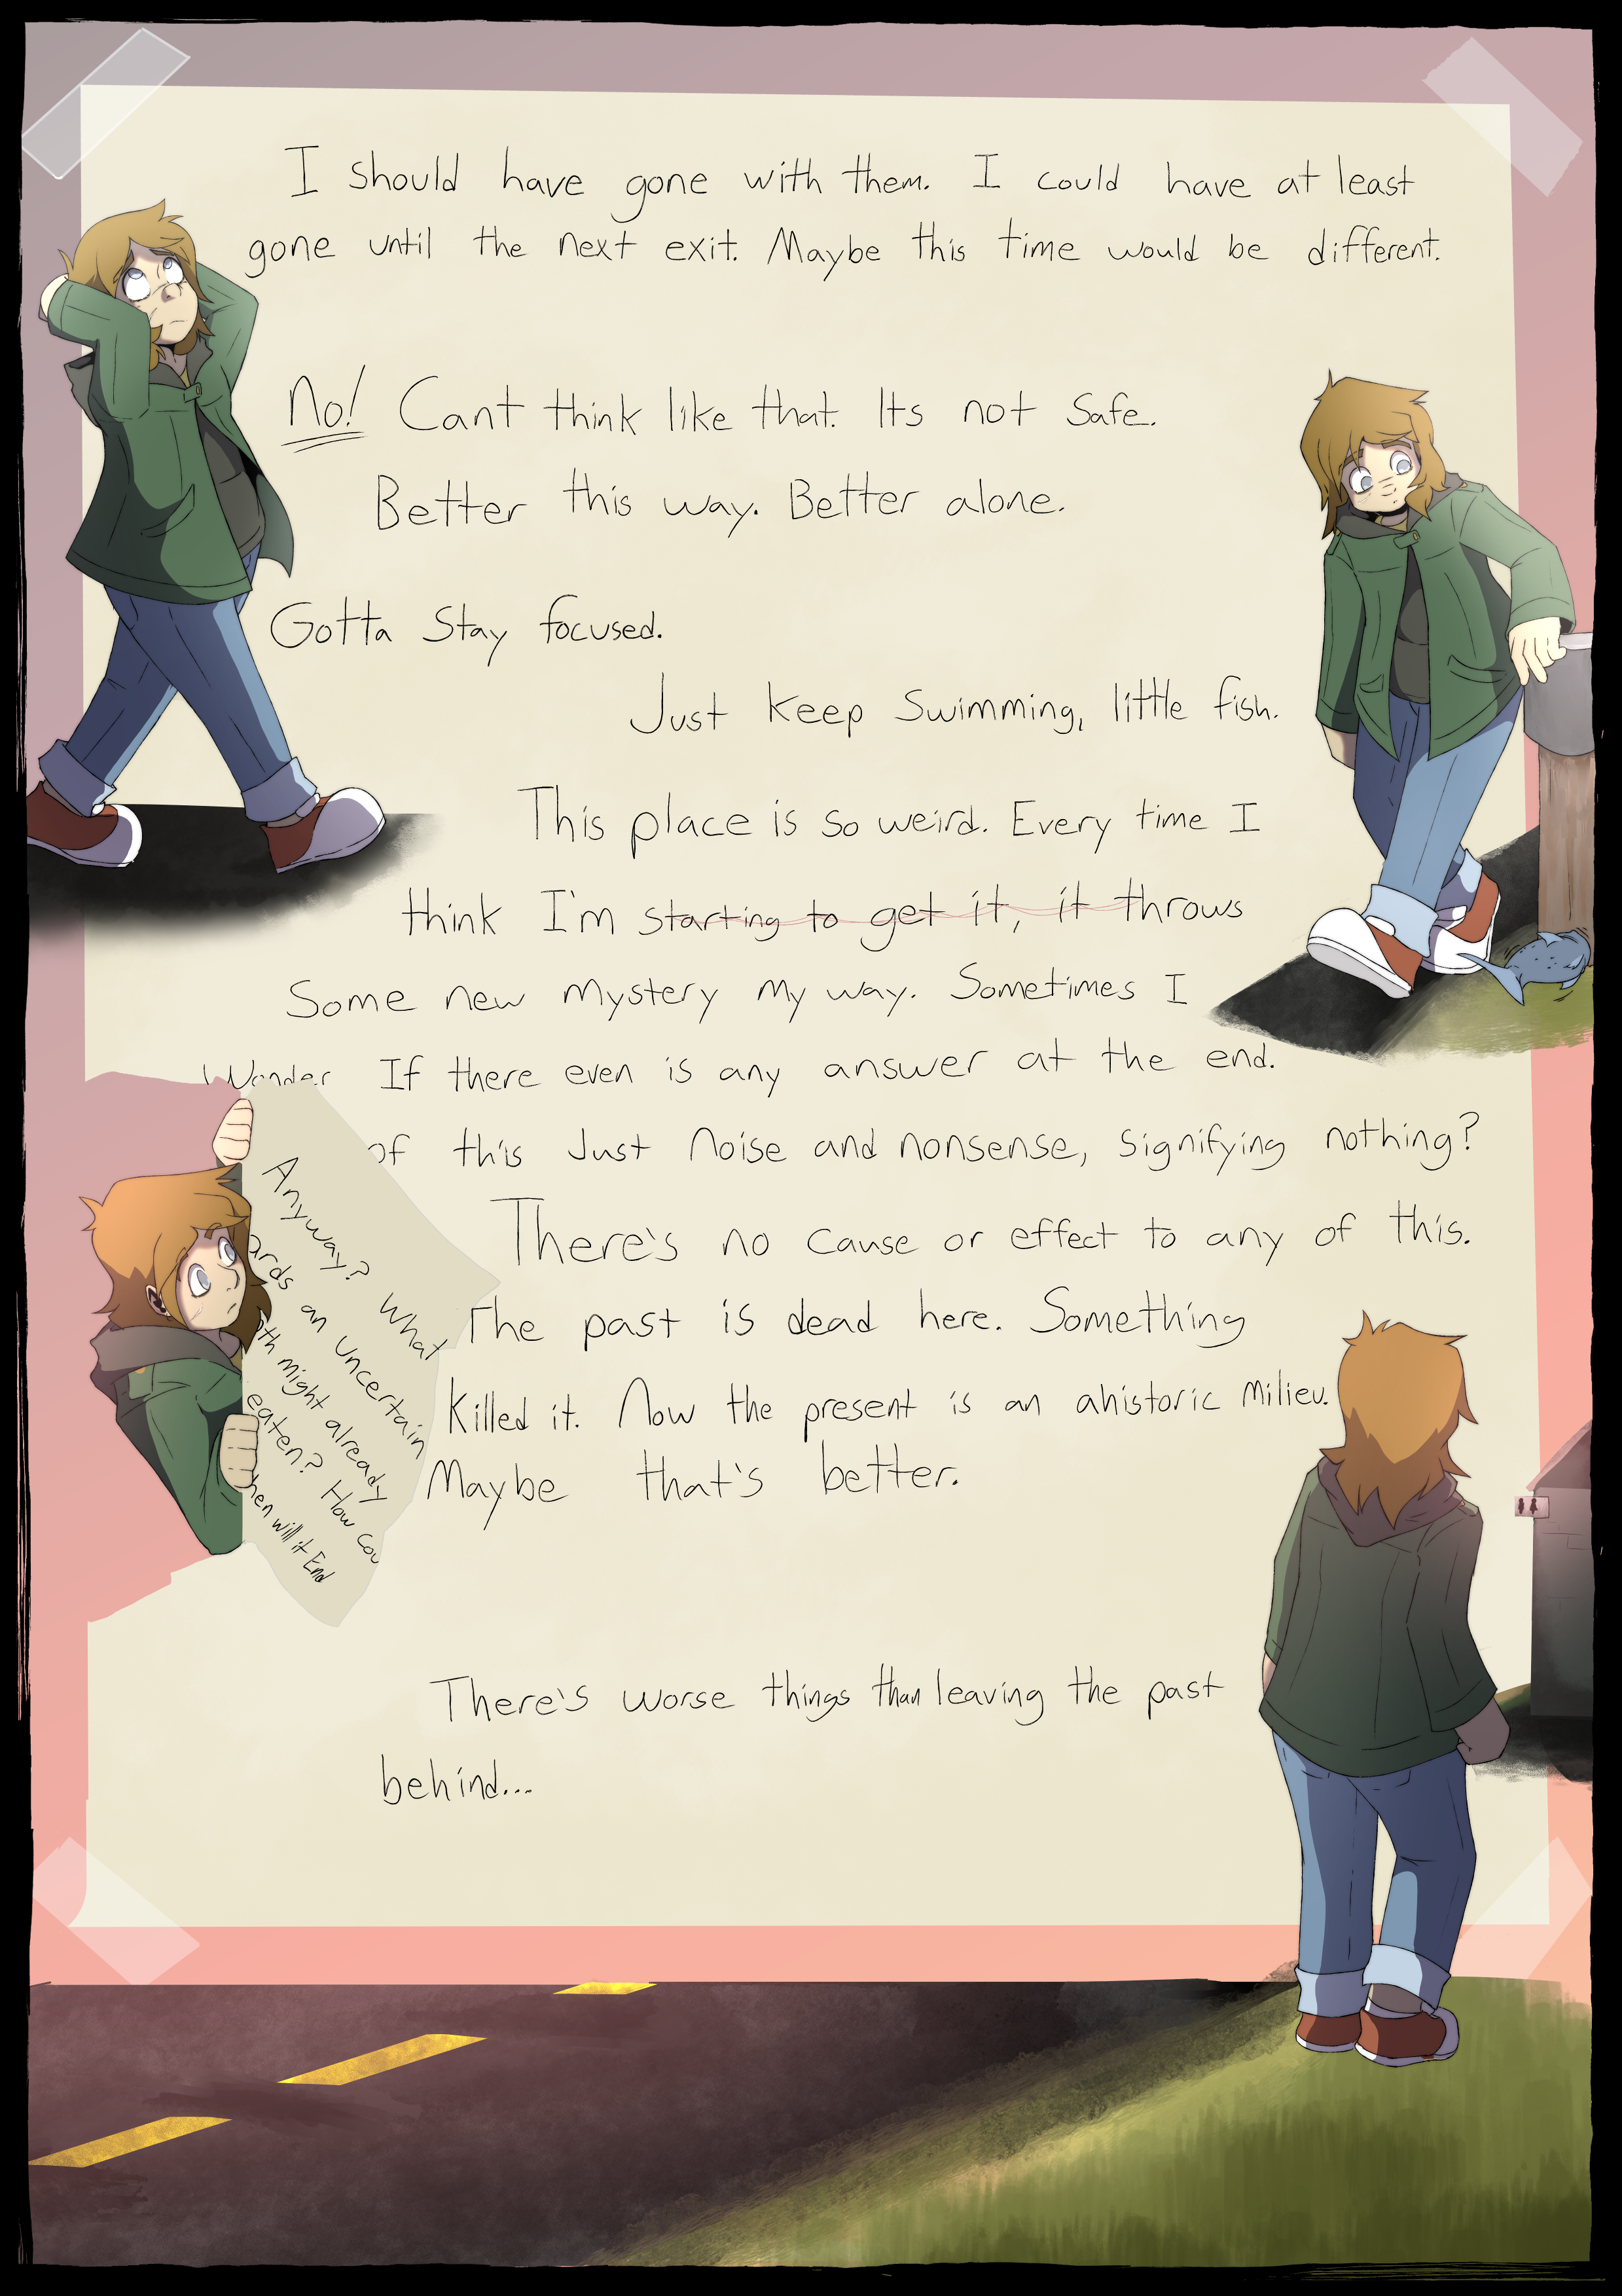 I should have gone with them. I could have at least
gone until the next exit. Maybe this time would be different.
No! Cant think like that. Its not safe.
Better this way. Better alone.
Gotta stay focused.
Just keep swimming, little fish.
This place is so weird. Every time I
think I'm starting to get it, it throws
some new mystery my way. Sometimes I
Wonder If there even is any answer at the end.
of this just noise and nonsense, signifying nothing?
There's no cause or effect to any of this.
The past is dead here. Something
killed it. Now the present is an ahistoric milieu.
Maybe that's better.
Anyway? What
ards an uncertain
oth might already
eaten? How cou
hen will it End
There's worse things than leaving the past
behind...